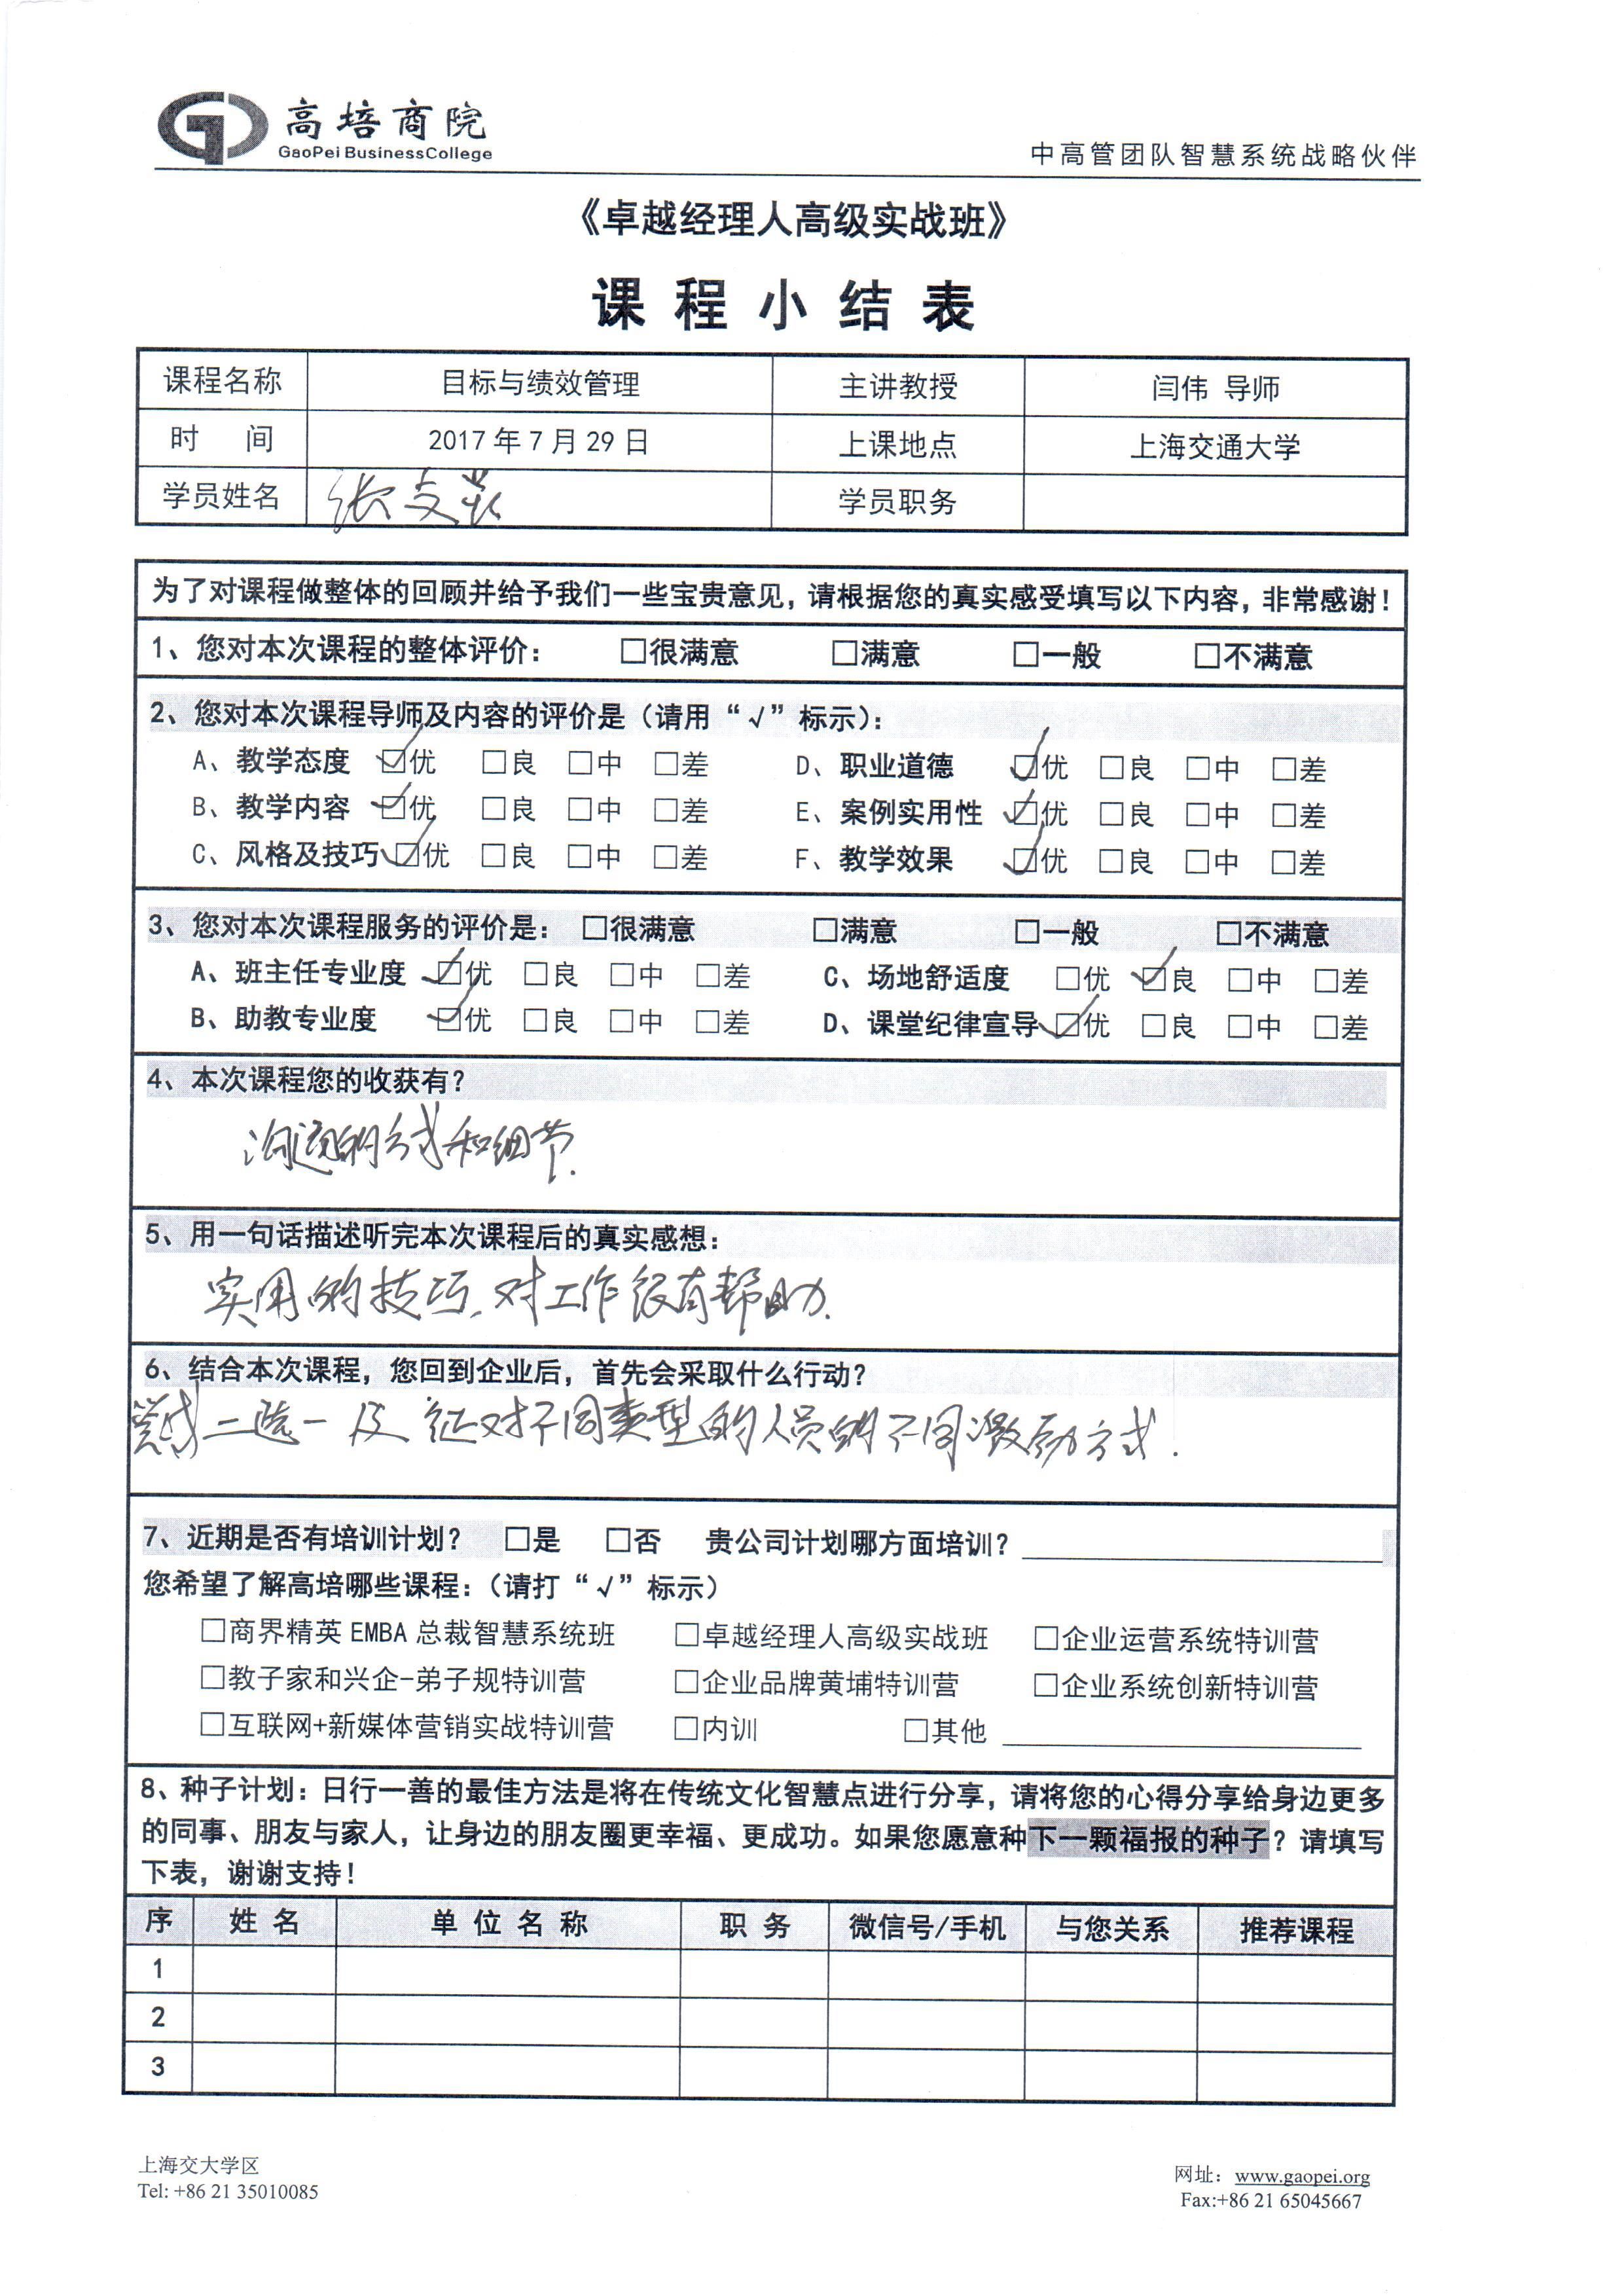 高培商院
GaoPei BusinessCollege
中高管团队智慧系统战略伙伴
《卓越经理人高级实战班》
课程小结表
课程名称 目标与绩效管理 主讲教授 闫伟 导师
时 间 2017年7月29日 上课地点 上海交通大学
学员姓名 张 学员职务
为了对课程做整体的回顾并给予我们一些宝贵意见，请根据您的真实感受填写以下内容，非常感谢！
1、您对本次课程的整体评价： □很满意 □满意 □一般 □不满意
2、您对本次课程导师及内容的评价是（请用“√”标示）：
A、教学态度 ☑优 □良 □中 □差 D、职业道德 ☑优 □良 □中 □差
B、教学内容 ☑优 □良 □中 □差 E、案例实用性 ☑优 □良 □中 □差
C、风格及技巧 ☑优 □良 □中 □差 F、教学效果 ☑优 □良 □中 □差
3、您对本次课程服务的评价是： □很满意 □满意 □一般 □不满意
A、班主任专业度 ☑优 □良 □中 □差 C、场地舒适度 □优 ☑良 □中 □差
B、助教专业度 ☑优 □良 □中 □差 D、课堂纪律宣导 ☑优 □良 □中 □差
4、本次课程您的收获有？
沟通的方式和细节.
5、用一句话描述听完本次课程后的真实感想：
实用的技巧、对工作很有帮助.
6、结合本次课程，您回到企业后，首先会采取什么行动？
二选一 及 征对不同类型的人员的不同激励方式.
7、近期是否有培训计划？ □是 □否 贵公司计划哪方面培训？
您希望了解高培哪些课程：（请打“√”标示）
□商界精英EMBA总裁智慧系统班 □卓越经理人高级实战班 □企业运营系统特训营
□教子家和兴企-弟子规特训营 □企业品牌黄埔特训营 □企业系统创新特训营
□互联网+新媒体营销实战特训营 □内训 □其他
8、种子计划：日行一善的最佳方法是将在传统文化智慧点进行分享，请将您的心得分享给身边更多
的同事、朋友与家人，让身边的朋友圈更幸福、更成功。如果您愿意种下一颗福报的种子？请填写
下表，谢谢支持！
序 姓名 单位名称 职务 微信号/手机 与您关系 推荐课程
1
2
3
上海交大学区
Tel: +86 21 35010085
网址：www.gaopei.org
Fax:+86 21 65045667